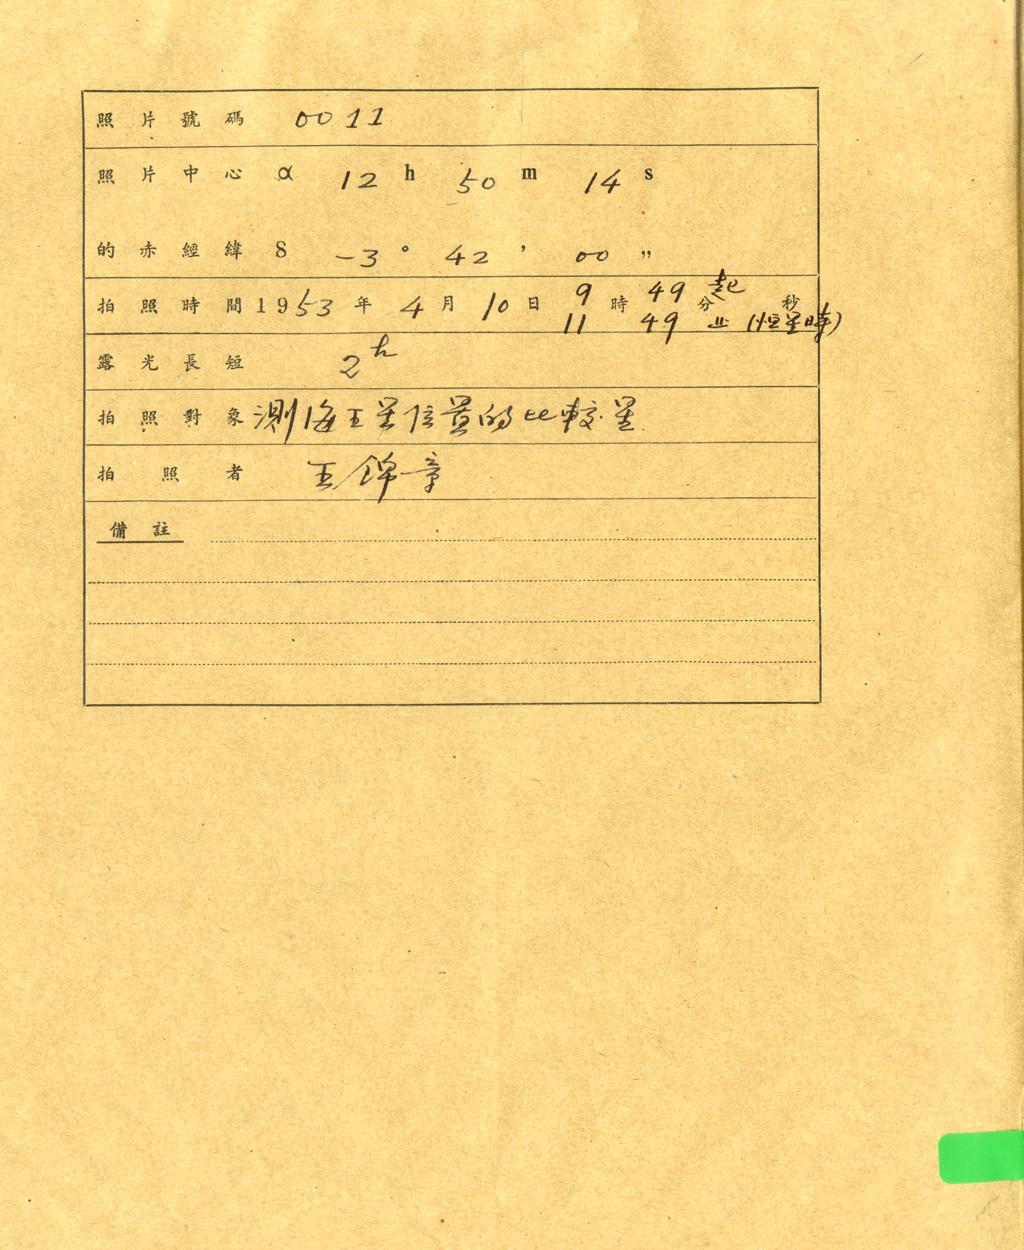 照片號碼 0011
照片中心 α 12 h 50 m 14 s
的赤經緯 δ -3° 42 ' 00 "
拍照時間 1953年 4月 10日 9時 49分起 秒
11 49 止 (恒星時)
露光長短 2h
拍照對象 測海王星位置的比較星
拍照者 王錦章
備註